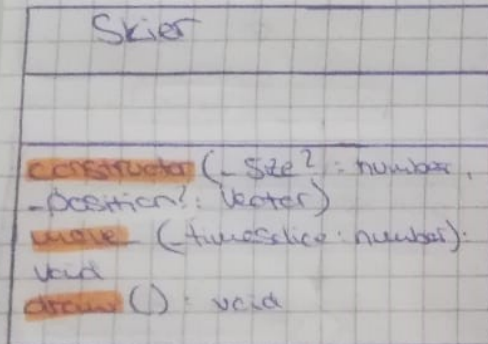 Skier
constructor (_size? : number,
_position? : Vector)
move (_timeslice : number) :
void
draw () : void